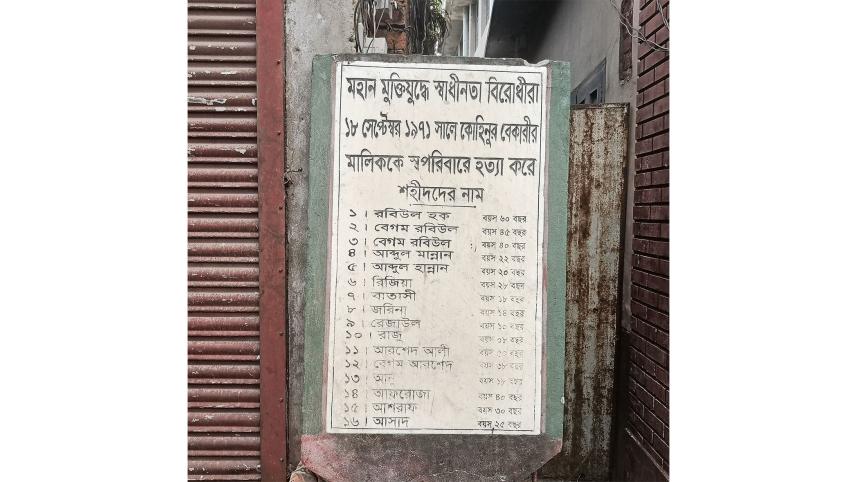 মহান মুক্তিযুদ্ধে স্বাধীনতা বিরোধীরা
১৮ সেপ্টেম্বর ১৯৭১ সালে কোহিনুর বেকারীর
মালিককে স্বপরিবারে হত্যা করে
শহীদদের নাম
১। রবিউল হক বয়স ৬০ বছর
২। বেগম রবিউল বয়স ৪৫ বছর
৩। বেগম রবিউল বয়স ৪০ বছর
৪। আব্দুল মান্নান বয়স ২২ বছর
৫। আব্দুল হান্নান বয়স ২০ বছর
৬। রিজিয়া বয়স ২৮ বছর
৭। বাতাসী বয়স ১৮ বছর
৮। জরিনা বয়স ১৪ বছর
৯। রেজাউল বয়স ১০ বছর
১০। রাজু বয়স ০৮ বছর
১১। আরশেদ আলী বয়স বছর
১২। বেগম আরশেদ বয়স বছর
১৩। বয়স ১৮ বছর
১৪। আফরোজা বয়স ৪০ বছর
১৫। আশরাফ বয়স ৩০ বছর
১৬। আসাদ বয়স ২৫ বছর